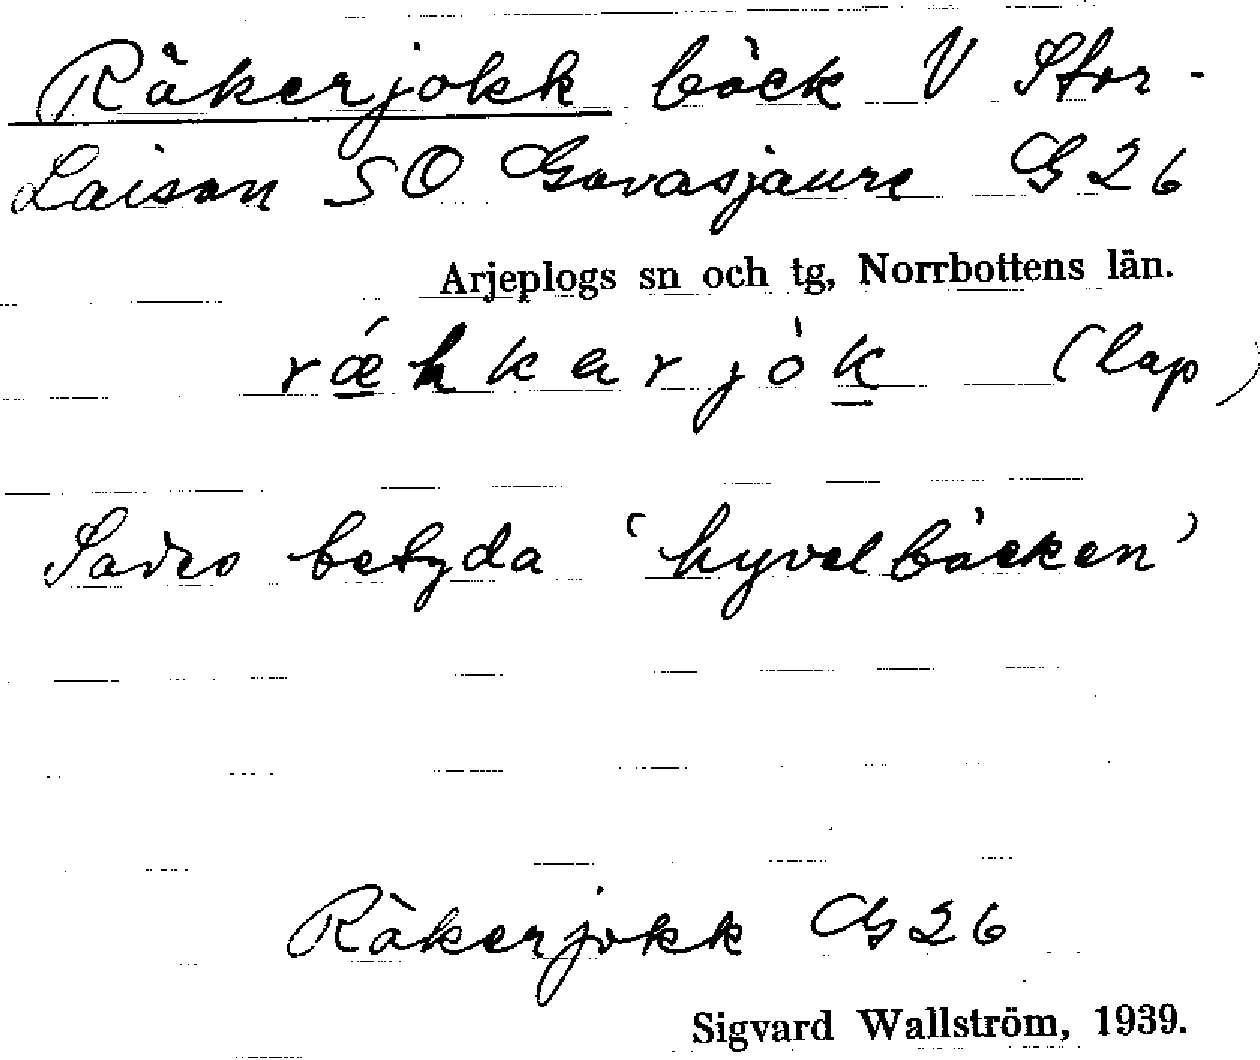 Räkerjokk bäck V Stor-
Laisan SO Gavasjaure G 26
Arjeplogs sn och tg, Norrbottens län.
rǽhkarjòk (lap)
Sades betyda 'hyvelbäcken'
Räkerjokk G 26
Sigvard Wallström, 1939.